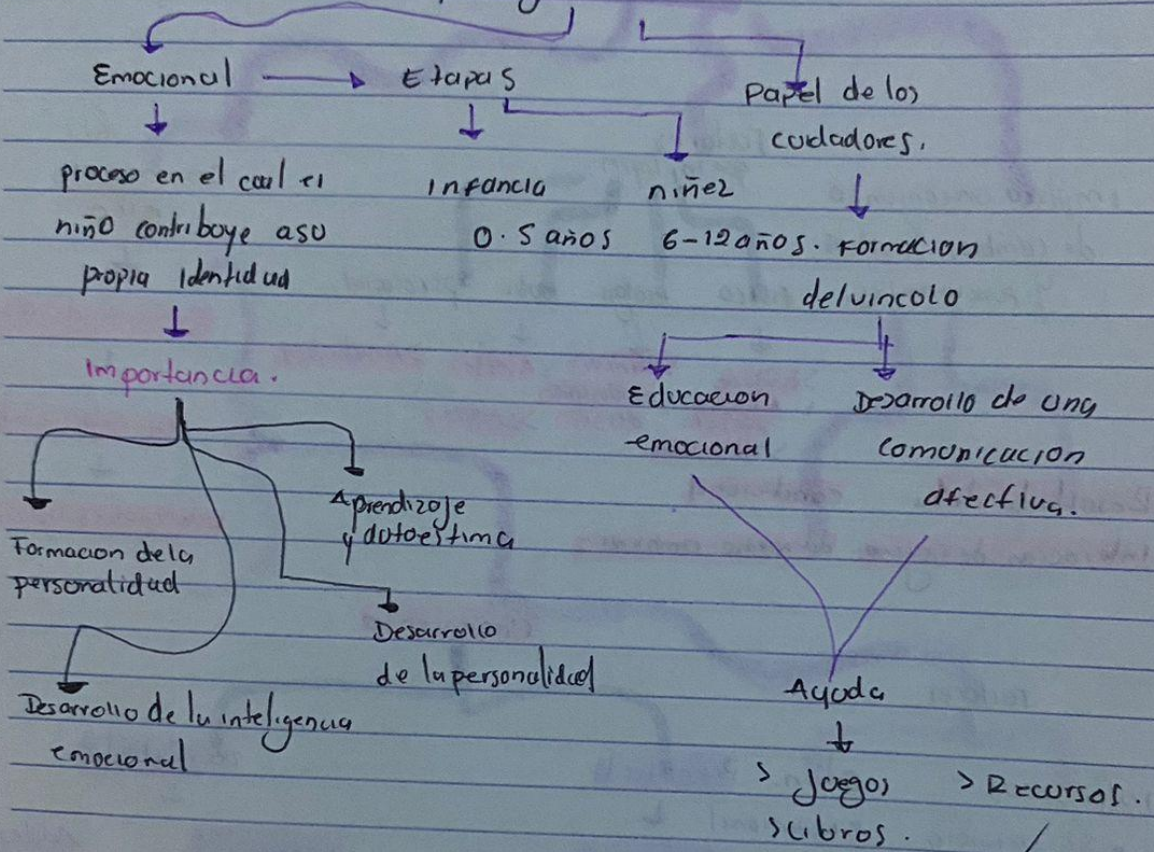 Emocional
Etapas
Papel de los
cuidadores.
proceso en el cual el
niño contribuye a su
propia identidad
infancia
0-5 años
niñez
6-12 años.
Formacion
del vinculo
importancia.
Educacion
emocional
Desarrollo de una
comunicacion
afectiva.
Formacion de la
personalidad
Aprendizaje
y autoestima
Desarrollo
de la personalidad
Desarrollo de la inteligencia
emocional
Ayuda
> juegos
> Recursos.
> libros.